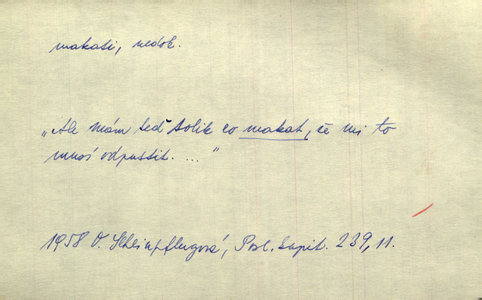 makati, nedok.
„Ale mám teď tolik co makat, že mi to
musíš odpustit. ...“
1958 O. Scheinpflugová, Posl. kapit. 239, 11.